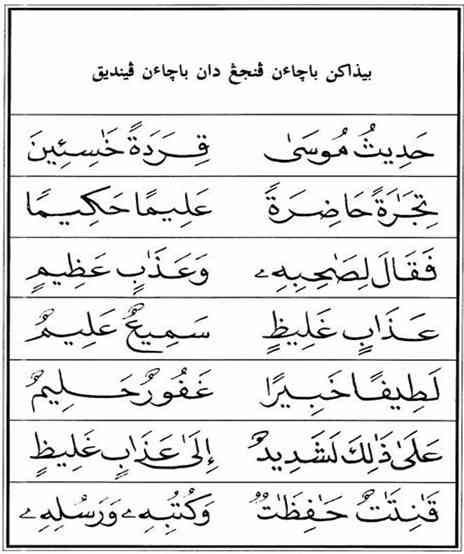 بيذاكن باچاءن ڤنجڠ دان باچاءن ڤينديق
حَدِيثُ مُوسَىٰ قِرَدَةً خَٰسِـِٔينَ
تِجَٰرَةً حَاضِرَةً عَلِيمًا حَكِيمًا
فَقَالَ لِصَٰحِبِهِۦ وَعَذَابٍ عَظِيمٍ
عَذَابٍ غَلِيظٍ سَمِيعٌ عَلِيمٌ
لَطِيفًا خَبِيرًا غَفُورٌ حَلِيمٌ
عَلَىٰ ذَٰلِكَ لَشَدِيدٌ إِلَىٰ عَذَابٍ غَلِيظٍ
قَٰنِتَٰتٌ حَٰفِظَٰتٌ وَكُتُبِهِۦ وَرُسُلِهِۦ